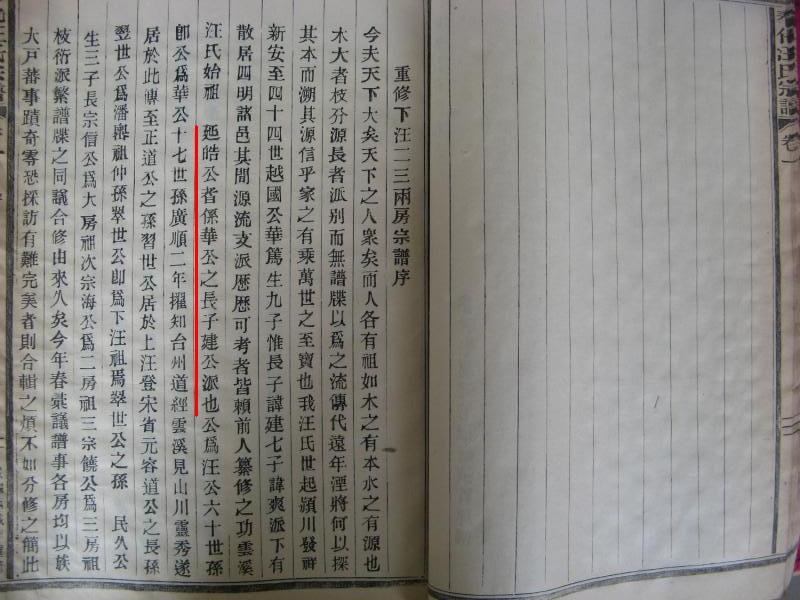 重修下汪二三兩房宗譜序
今夫天下大矣天下之人衆矣而人各有祖如木之有本水之有源也
木大者枝分源長者派別而無譜牒以爲之流傳代遠年湮將何以探
其本而溯其源信乎家之有乘萬世之至寶也我汪氏世起潁川發祥
新安至四十四世越國公華篤生九子惟長子諱建七子諱爽派下有
散居四明諸邑其間源流支派歷歷可考者皆賴前人纂修之功雲溪
汪氏始祖 廼皓公者係華公之長子建公派也公爲汪公六十世孫
卽公爲華公十七世孫廣順二年擢知台州道經雲溪見山川靈秀遂
居於此傳至正道公之孫習世公居於上汪登宋省元容道公之長孫
翌世公爲潘嶴祖仲孫翠世公卽爲下汪祖焉翠世公之孫 民久公
生三子長宗信公爲大房祖次宗海公爲二房祖三宗饒公爲三房祖
枝衍派繁譜牒之同議合修由來久矣今年春彙議譜事各房均以族
大戸蕃事蹟奇零恐採訪有難完美者則合輯之煩不如分修之簡此
汪氏宗譜
卷一